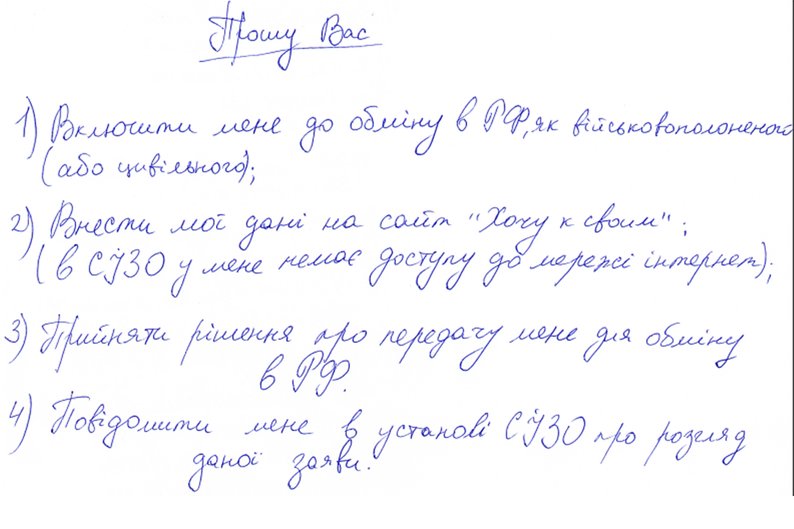 Прошу Вас
1) Включити мене до обміну в РФ, як військовополоненого
(або цивільного);
2) Внести мої дані на сайт "Хочу к своим";
(в СІЗО у мене немає доступу до мережі інтернет);
3) Прийняти рішення про передачу мене для обміну
в РФ.
4) Повідомити мене в установі СІЗО про розгляд
даної заяви.